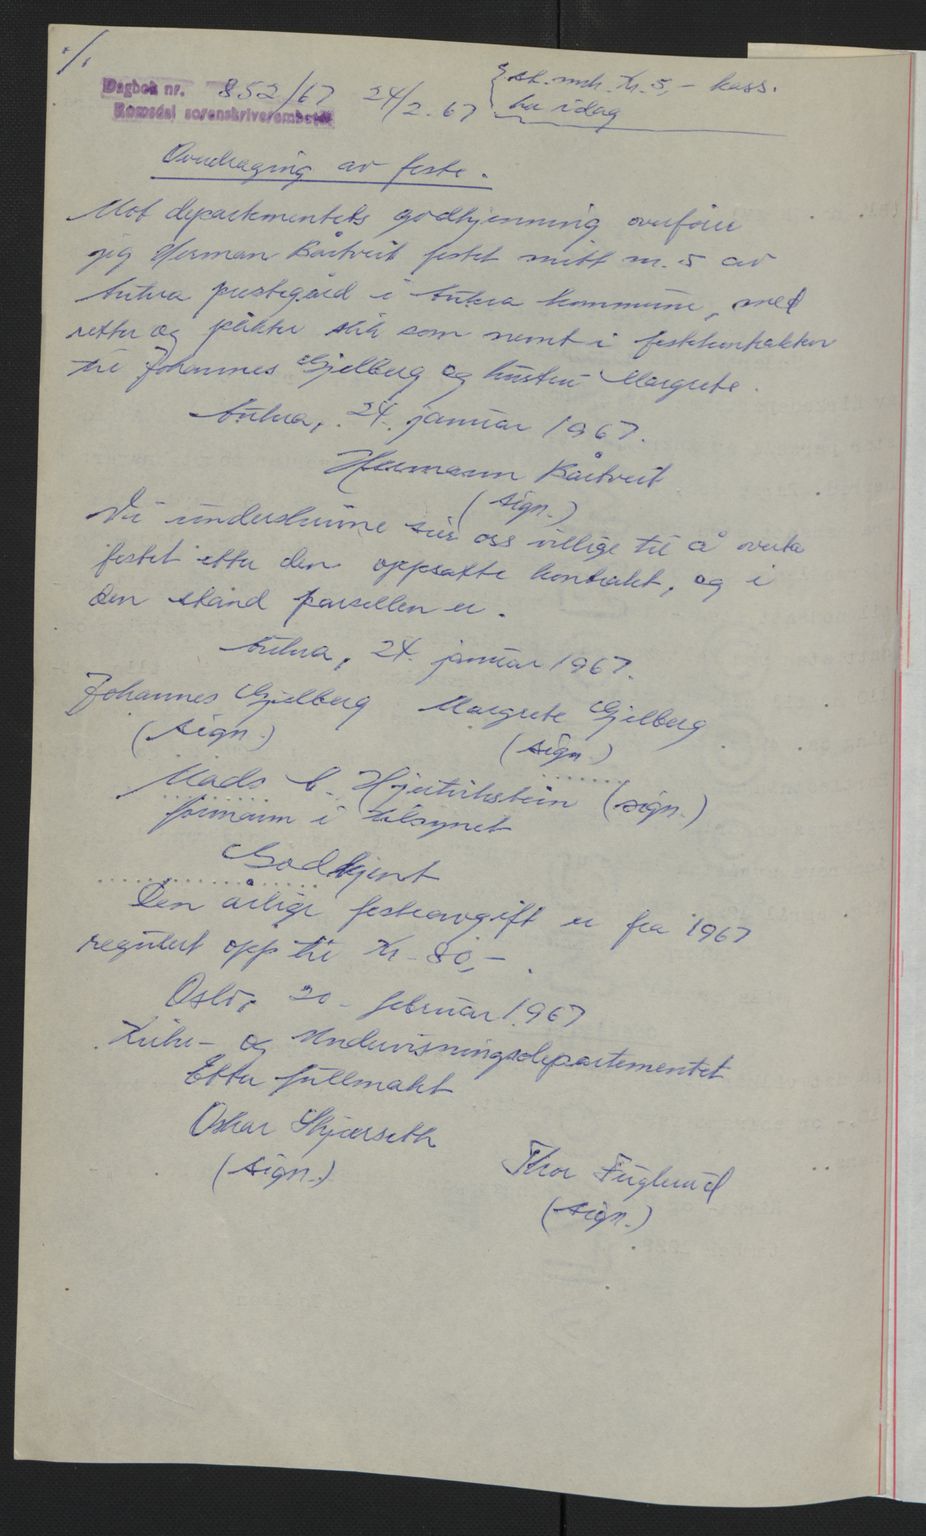 ./.
Dagbok nr. 852/67 24/2.67 { st. mrk. kr. 5,- kass.
Romsdal sorenskriverembete her idag
Overdraging av feste.
Mot departementets godkjenning overfører
jeg Herman Kåtveit festet mitt nr. 5 av
Aukra prestegård i Aukra kommune, med
retter og plikter slik som nemt i festekontrakten
til Johannes Gjelberg og hustru Margrete.
Aukra, 24. januar 1967.
Hermann Kåtveit
(sign.)
Vi underskrivne sier oss villige til å overta
festet etter den oppsatte kontrakt, og i
den stand parsellen er.
Aukra, 24. januar 1967.
Johannes Gjelberg Margrete Gjelberg
(sign.) (sign.)
Mads C. Hjertvikstein (sign.)
formann i tilsynet
Godkjent
Den årlige festeavgift er fra 1967
regulert opp til kr. 80,-.
Oslo, 20. februar 1967
Kirke- og Undervisningsdepartementet
Etter fullmakt
Oskar Skjærseth
(sign.) Thor Fuglerud
(sign.)